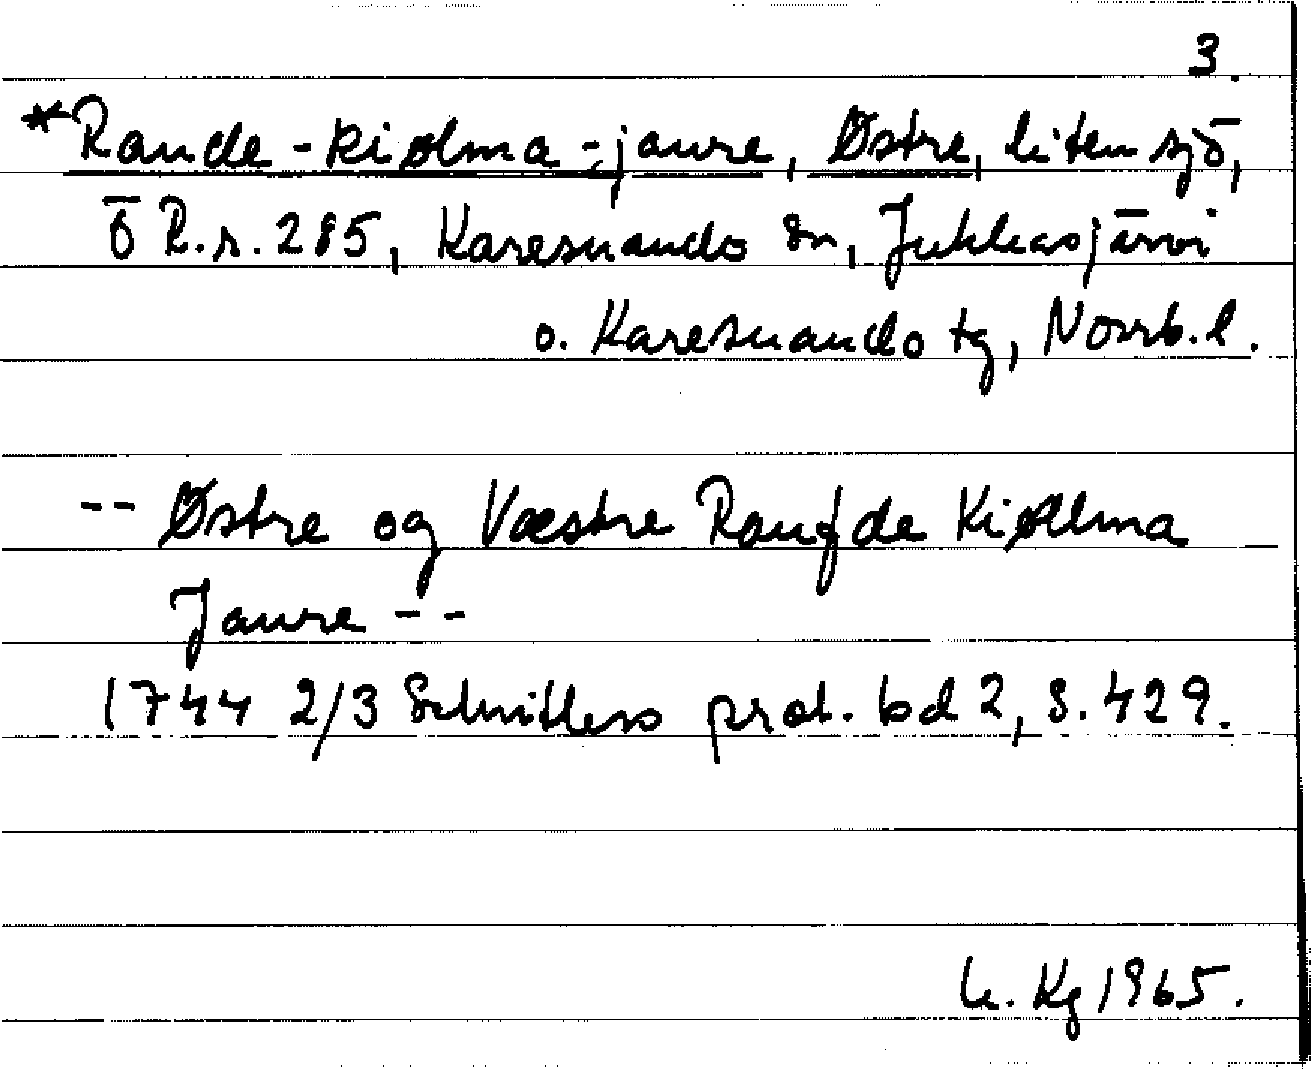 3.
*Raude-kiølma-jaure, Østre, liten sjö,
ö R.r. 285, Karesuando sn, Jukkasjärvi
o. Karesuando tg, Norrb. l.
-- Østre og Væstre Raufde Kiølma
Jaure --
1744 2/3 Schnitlers prot. bd 2, s. 429.
Kg 1965.